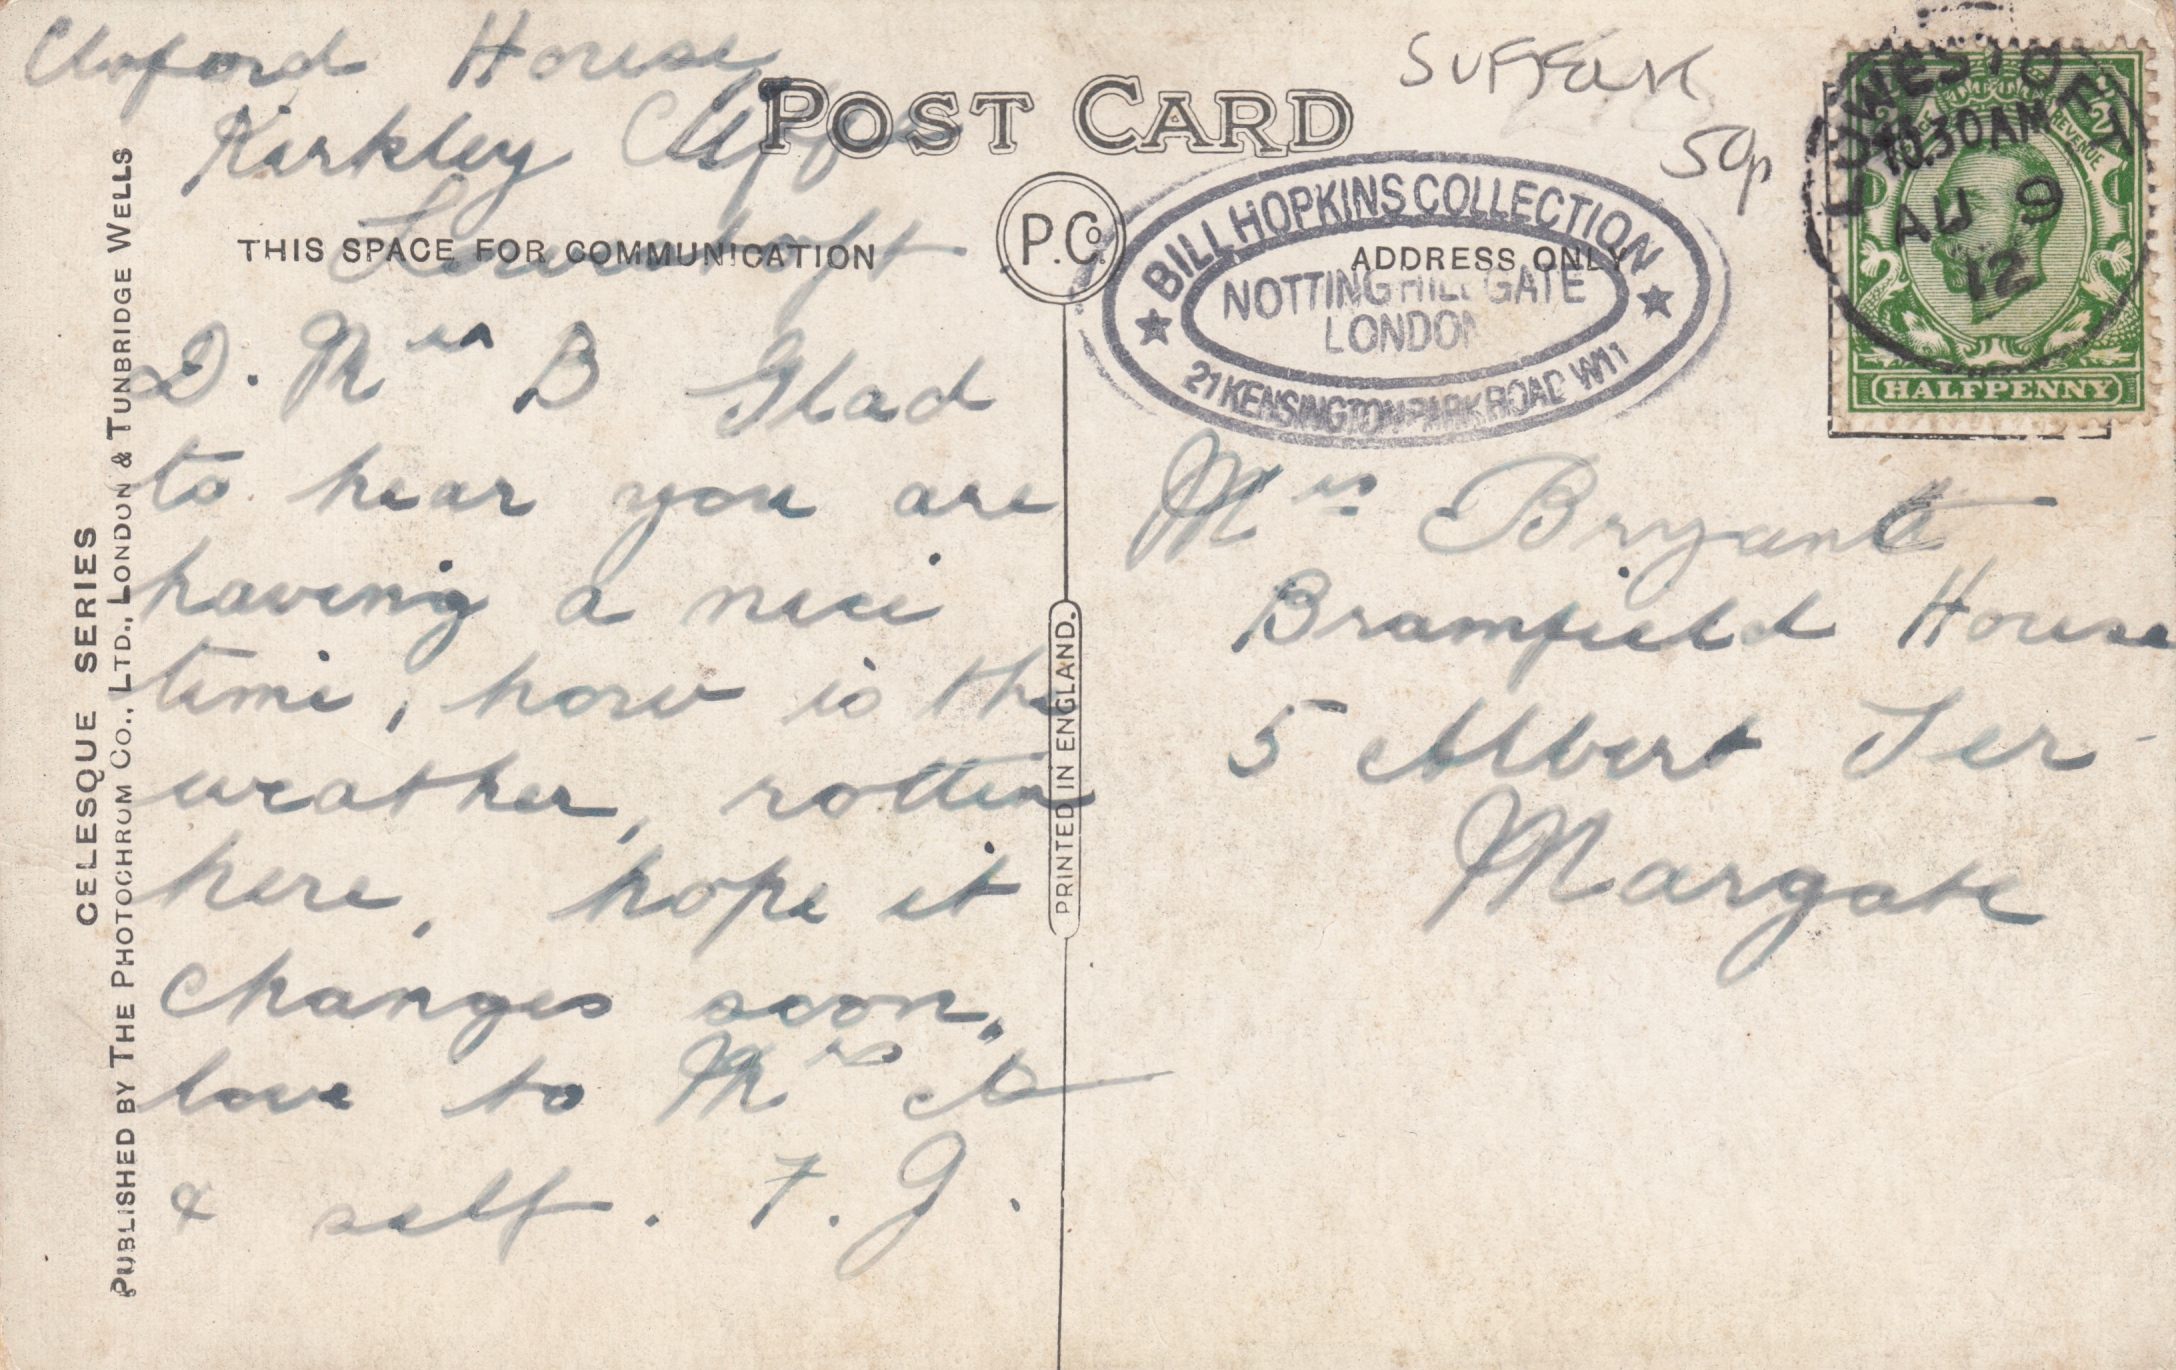 House
Kirkley Cliffe
Lowestoft
D. Mrs B Glad
to hear you are
having a nice
time, how is the
weather, rotten
here, hope it
changes soon,
love to Mrs
& self. F. G.
POST CARD
THIS SPACE FOR COMMUNICATION
P. Co.
ADDRESS ONLY
CELESQUE SERIES
PUBLISHED BY THE PHOTOCHRUM CO., LTD., LONDON & TUNBRIDGE WELLS
PRINTED IN ENGLAND.
SUFFOLK
50p
BILL HOPKINS COLLECTION
NOTTING HILL GATE
LONDON
21 KENSINGTON PARK ROAD W11
LOWESTOFT
10.30AM
AU 9
12
REVENUE
HALFPENNY
Mrs Bryant
Bramfield House
5 Albert Ter-
Margate